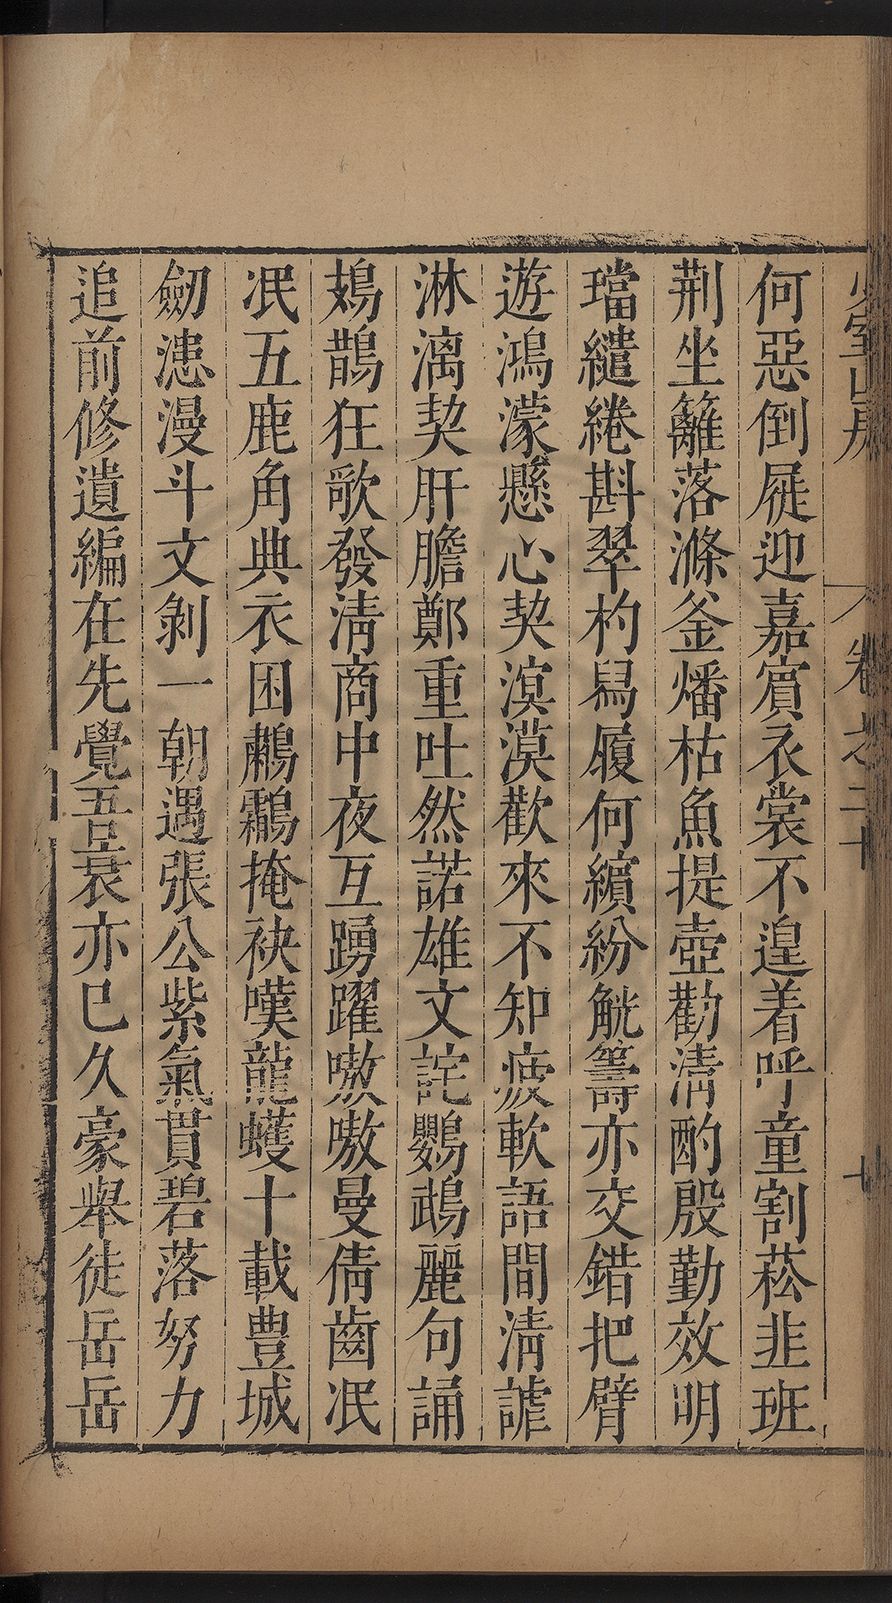 少室山房 卷之二十 十
何惡倒屣迎嘉賓衣裳不遑着呼童割菘韭班
荆坐籬落滌釜燔枯魚提壺勸清酌殷勤效明
璫繾綣斟翠杓舄履何繽紛觥籌亦交錯把臂
遊鴻濛懸心契溟漠歡來不知疲軟語間清謔
淋漓契肝膽鄭重吐然諾雄文詫鸚鵡麗句誦
鳷鵲狂歌發清商中夜互踴躍嗷嗷曼倩齒冺
冺五鹿角典衣困鷫鸘掩袂嘆龍蠖十載豊城
劒漶漫斗文剝一朝遇張公紫氣貫碧落努力
追前修遺編在先覺吾衰亦已久豪舉徒岳岳